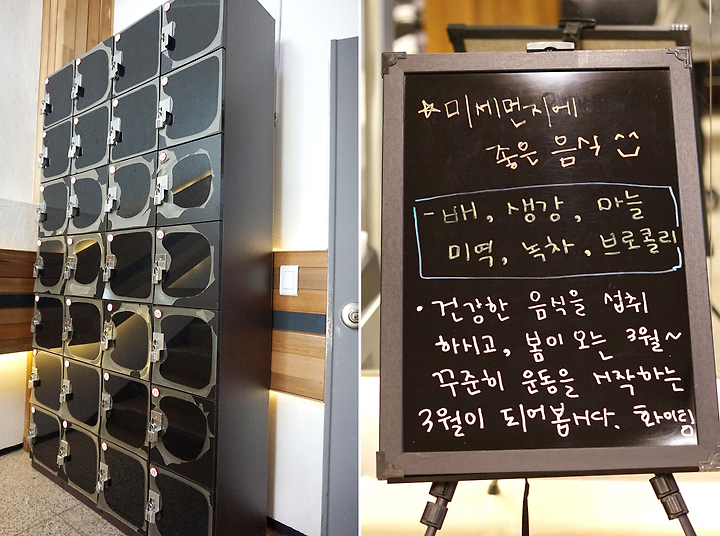 ☆미세먼지에
좋은 음식 ^^
- 배, 생강, 마늘
미역, 녹차, 브로콜리
• 건강한 음식을 섭취
하시고, 봄이 오는 3월~
꾸준히 운동을 시작하는
3월이 되어봅시다. 화이팅